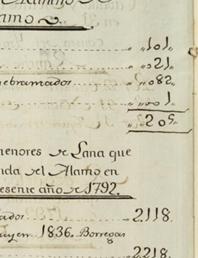 amo.
101
021
uebramados 082
001
205
menores de Lana que
nda del Alamo en
resente año de 1792.
ador 2118.
uyen 1836. Borregas
2218.